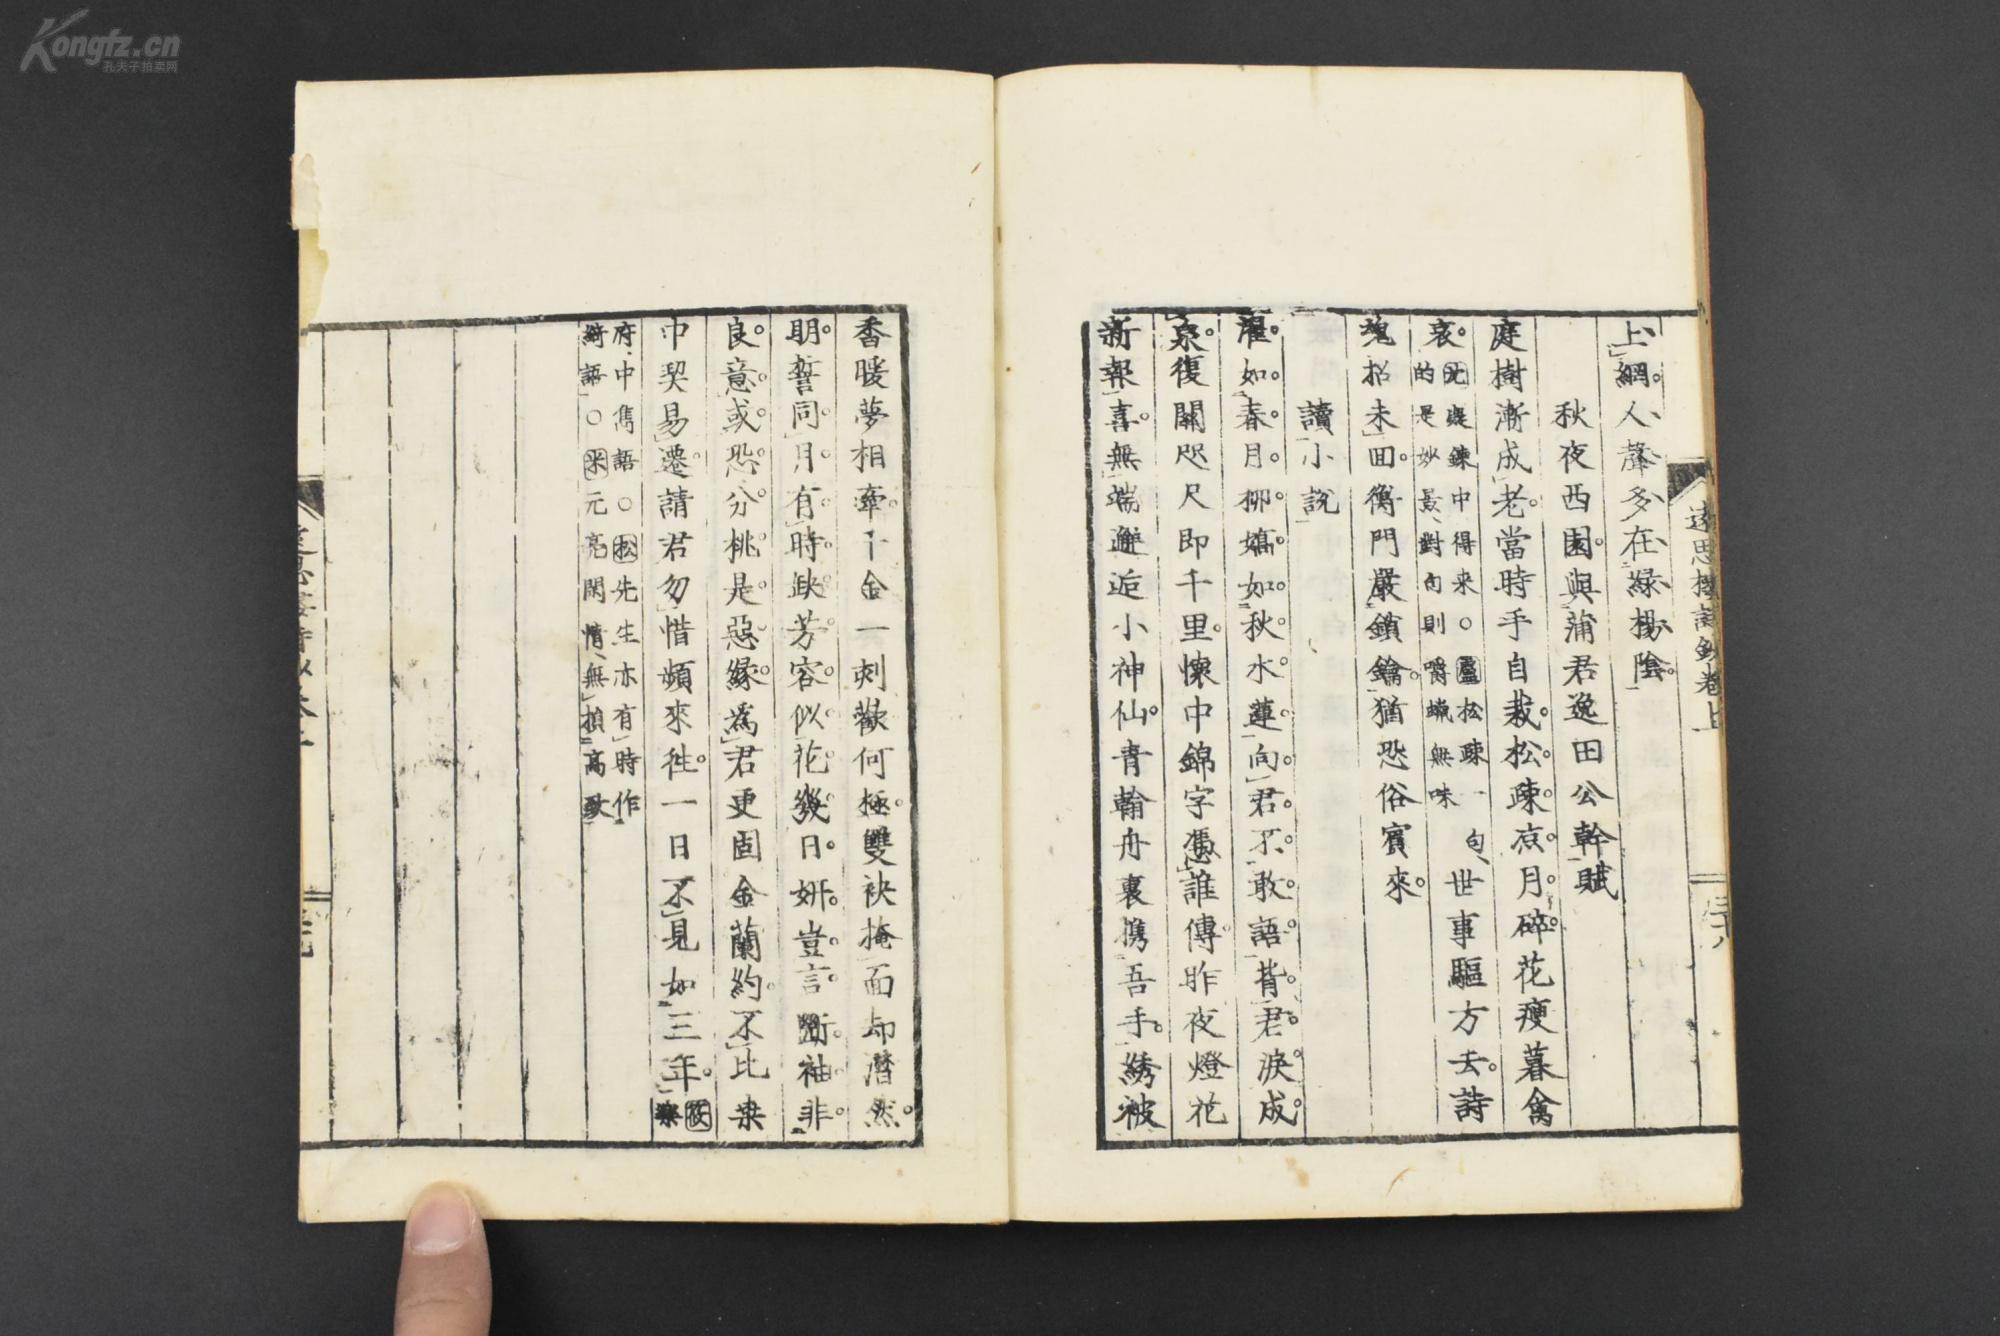 Kongfz.cn
孔夫子拍卖网
遠思樓詩鈔卷上
二十八
上網人聲多在緑楊陰
秋夜西園與蒲君逸田公幹賦
庭樹漸成老當時手自栽松疎凉月碎花瘦暮禽
哀
中得来○松疎一句
的是妙景對句則嚼蠟無味
世事驅方去詩
魂招未回衡門嚴鎖鑰猶恐俗賓來
讀小說
濯如春月柳嬌如秋水蓮向君不敢語背君淚成
泉復關咫尺即千里懷中錦字憑誰傳昨夜燈花
新報喜無端邂逅小神仙青翰舟裏携吾手綉被
香暖夢相牽千金一刺歡何極雙袂掩面却潸然
明誓同月有時缺芳容似花幾日妍豈言斷袖非
良意或恐分桃是惡緣為君更固金蘭約不比桒
中契易遷請君勿惜頻來徃一日不見如三年
筱樂
府中雋語○松先生亦有時作
綺語○米元亮閑情無損高致